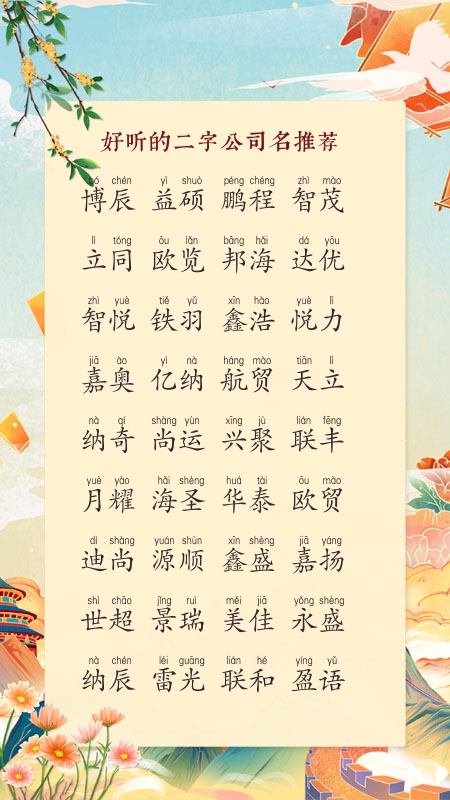 好听的二字公司名推荐
bó chén yì shuò péng chéng zhì mào
博辰 益硕 鹏程 智茂
lì tóng ōu lǎn bāng hǎi dá yōu
立同 欧览 邦海 达优
zhì yuè tiě yǔ xīn hào yuè lì
智悦 铁羽 鑫浩 悦力
jiā ào yì nà háng mào tiān lì
嘉奥 亿纳 航贸 天立
nà qí shàng yùn xīng jù lián fēng
纳奇 尚运 兴聚 联丰
yuè yào hǎi shèng huá tài ōu mào
月耀 海圣 华泰 欧贸
dí shàng yuán shùn xīn shèng jiā yáng
迪尚 源顺 鑫盛 嘉扬
shì chāo jǐng ruì měi jiā yǒng shèng
世超 景瑞 美佳 永盛
nà chén léi guāng lián hé yíng yǔ
纳辰 雷光 联和 盈语